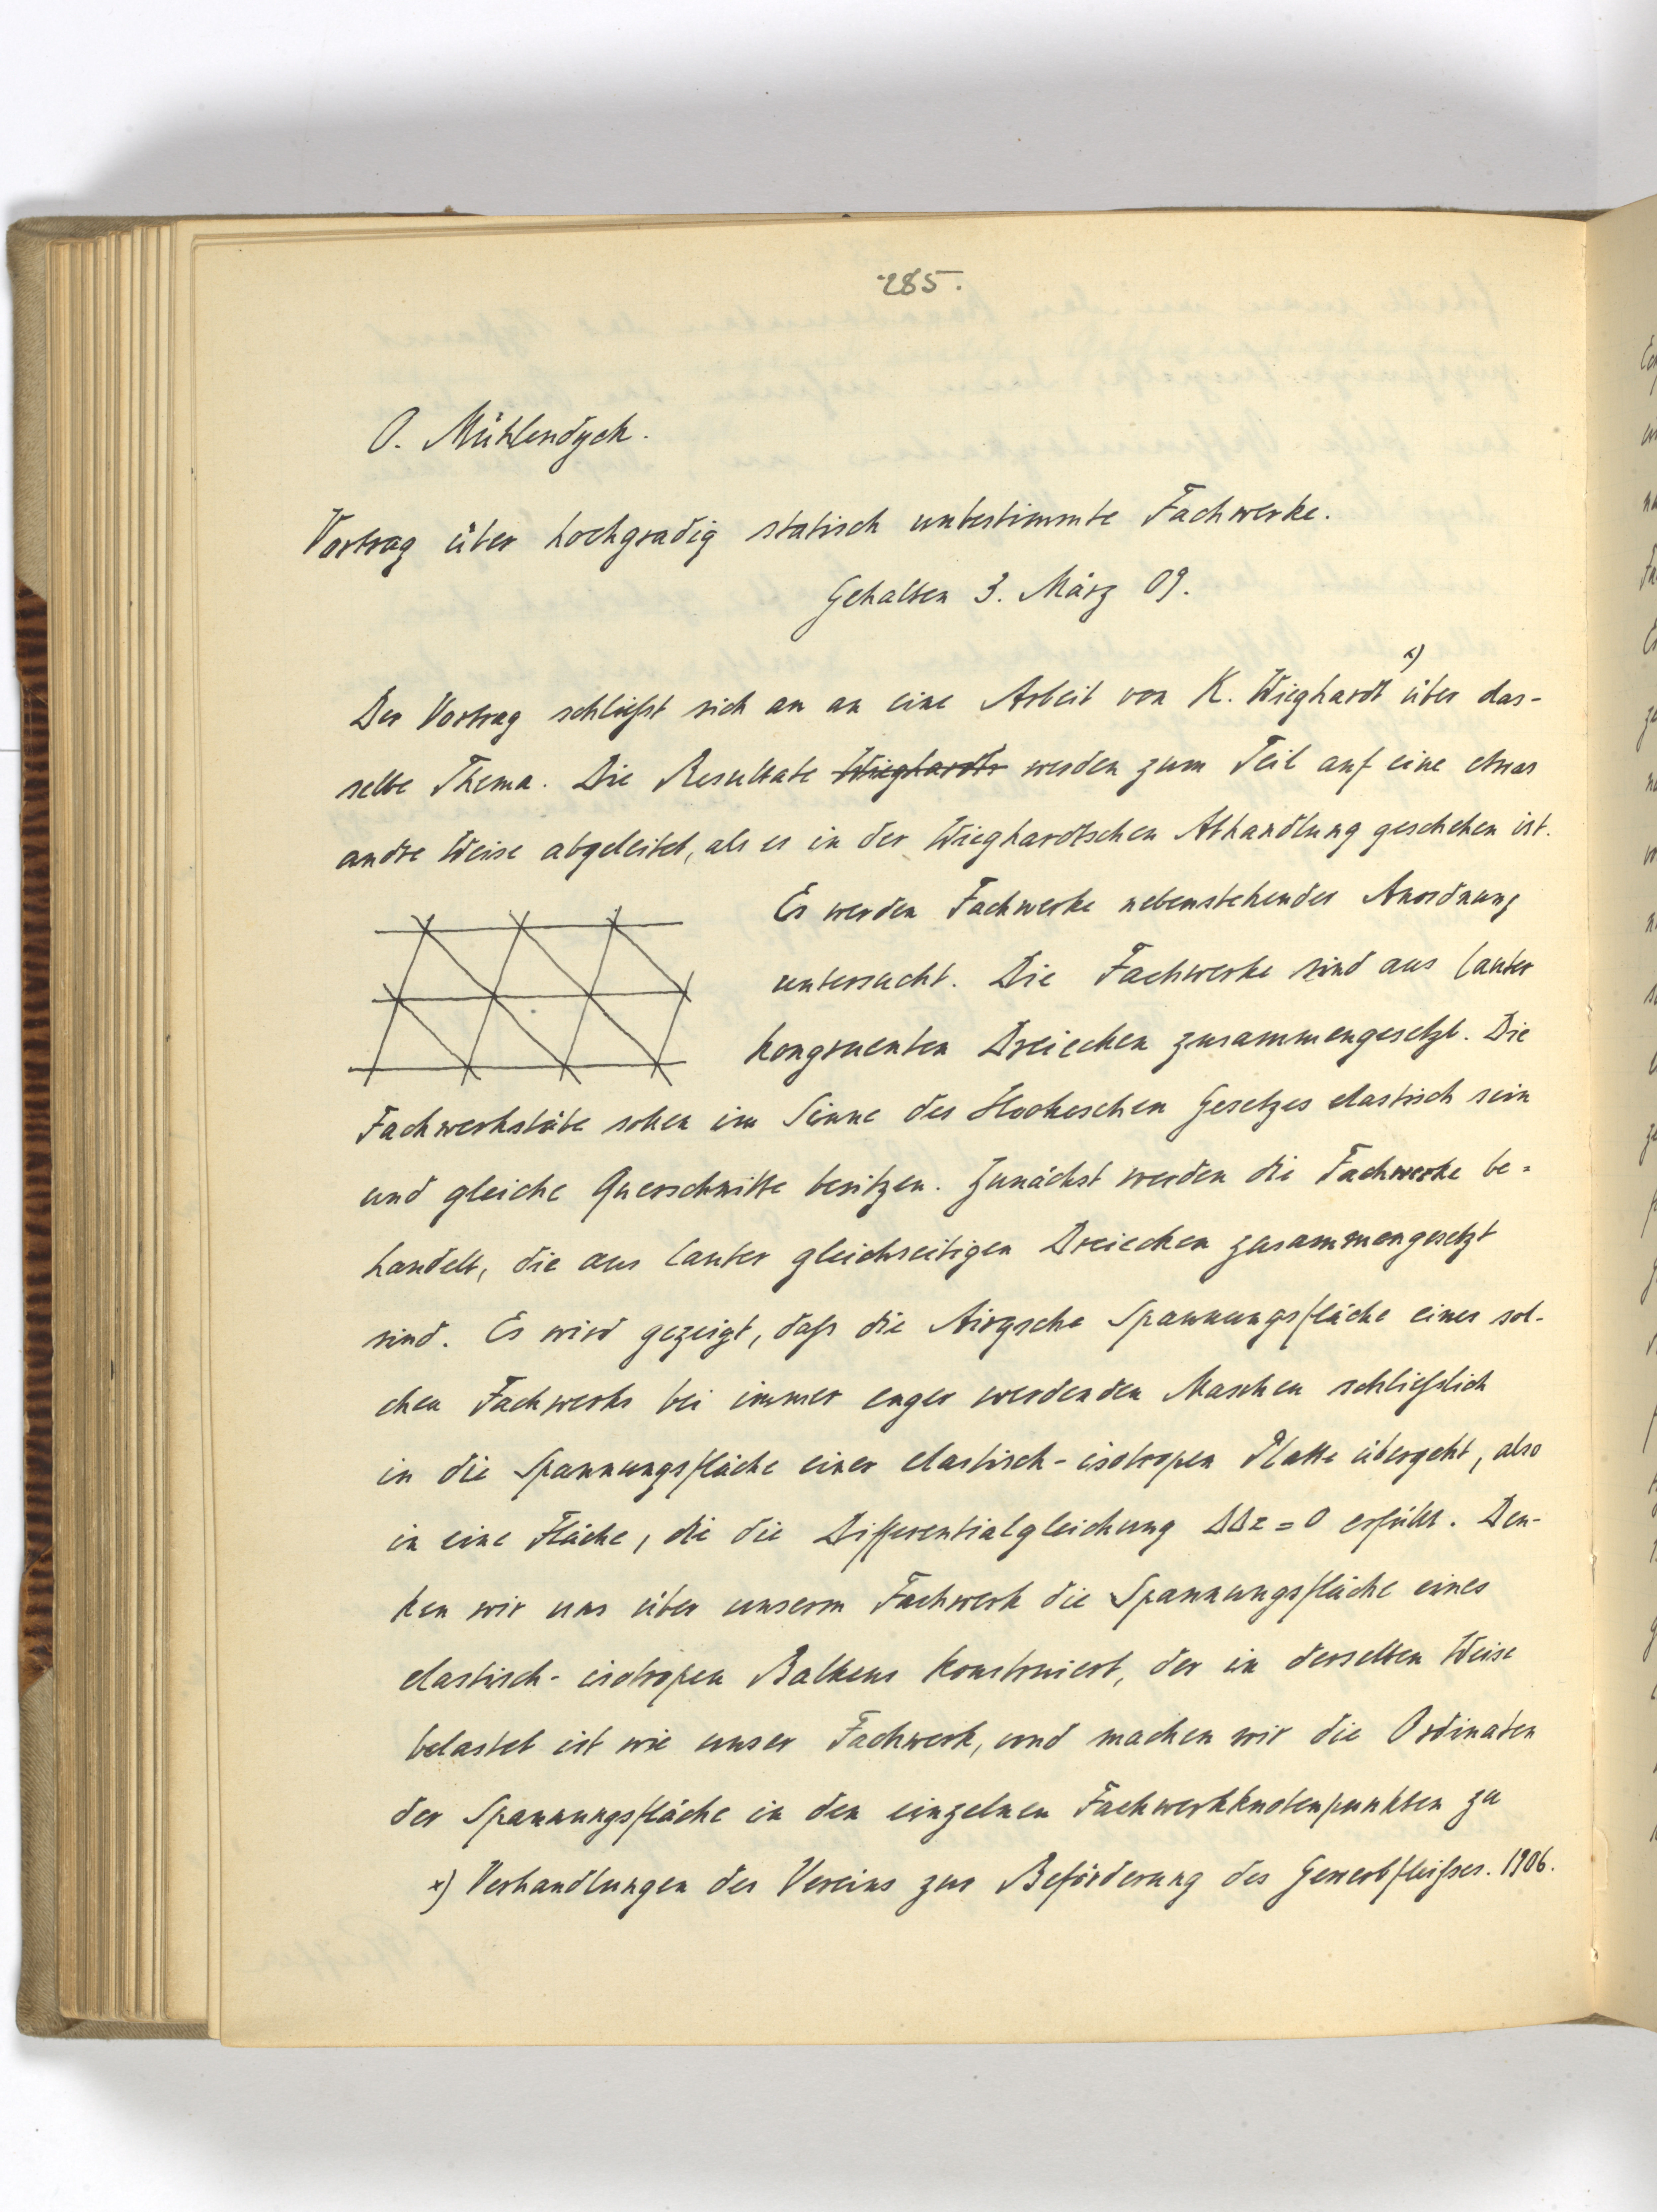 285.
O. Mühlendyck.
Vortrag über hochgradig statisch unbestimmte Fachwerke.
Gehalten 3. März 09.
Der Vortrag schließt sich an an eine Arbeit von K. Wieghardt x) über das-
selbe Thema. Die Resultate Wieghardts werden zum Teil auf eine etwas
andre Weise abgeleitet, als es in der Wieghardtschen Abhandlung geschehen ist.
Es werden Fachwerke nebenstehender Anordnung
untersucht. Die Fachwerke sind aus lauter
kongruenten Dreiecken zusammengesetzt. Die
Fachwerkstäbe sollen im Sinne des Hookeschen Gesetzes elastisch sein
und gleiche Querschnitte besitzen. Zunächst werden die Fachwerke be=
handelt, die aus lauter gleichseitigen Dreiecken zusammengesetzt
sind. Es wird gezeigt, daß die Airysche Spannungsfläche eines sol-
chen Fachwerks bei immer enger werdenden Maschen schließlich
in die Spannungsfläche einer elastisch-isotropen Platte übergeht, also
in eine Fläche, die die Differentialgleichung ΔΔz = 0 erfüllt. Den-
ken wir uns über unserm Fachwerk die Spannungsfläche eines
elastisch-isotropen Balkens konstruiert, der in derselben Weise
belastet ist wie unser Fachwerk, und machen wir die Ordinaten
der Spannungsfläche in den einzelnen Fachwerkknotenpunkten zu
x) Verhandlungen des Vereins zur Beförderung des Gewerbfleißes. 1906.